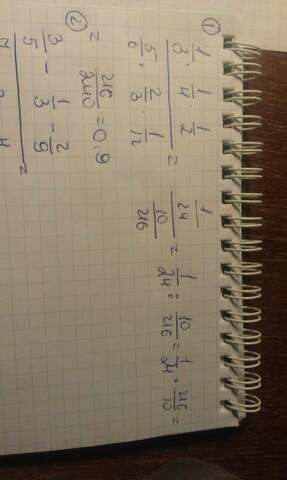 ① (1/3 · 1/4 · 1/2) / (5/6 · 2/3 · 1/12) = (1/24) / (10/216) = 1/24 : 10/216 = 1/24 · 216/10 =
= 216/240 = 0.9
② 3/5 - 1/3 - 2/9 =